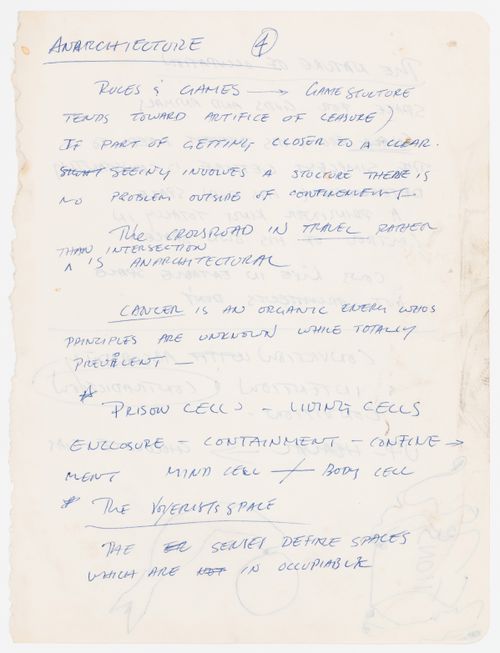 ANARCHITECTURE 4
RULES & GAMES → GAME STUCTURE
TENDS TOWARD ARTIFICE OF LEASURE)
IF PART OF GETTING CLOSER TO A CLEAR.
SIGHT SEEING INVOLVES A STUCTURE THERE IS
NO PROBLEM OUTSIDE OF CONFINEMENT.
THE CROSSROAD IN TRAVEL RATHER
THAN INTERSECTION
^ IS ANARCHITECTURAL
CANCER IS AN ORGANIC ENERGY WHOS
PRINCIPLES ARE UNKNOWN WHILE TOTALLY
PREVALENT —
* PRISON CELLS – LIVING CELLS
ENCLOSURE – CONTAINMENT – CONFINE →
MENT MIND CELL — BODY CELL
* THE VOYERISTS SPACE
THE SENSES DEFINE SPACES
WHICH ARE NOT IN OCCUPIABLE